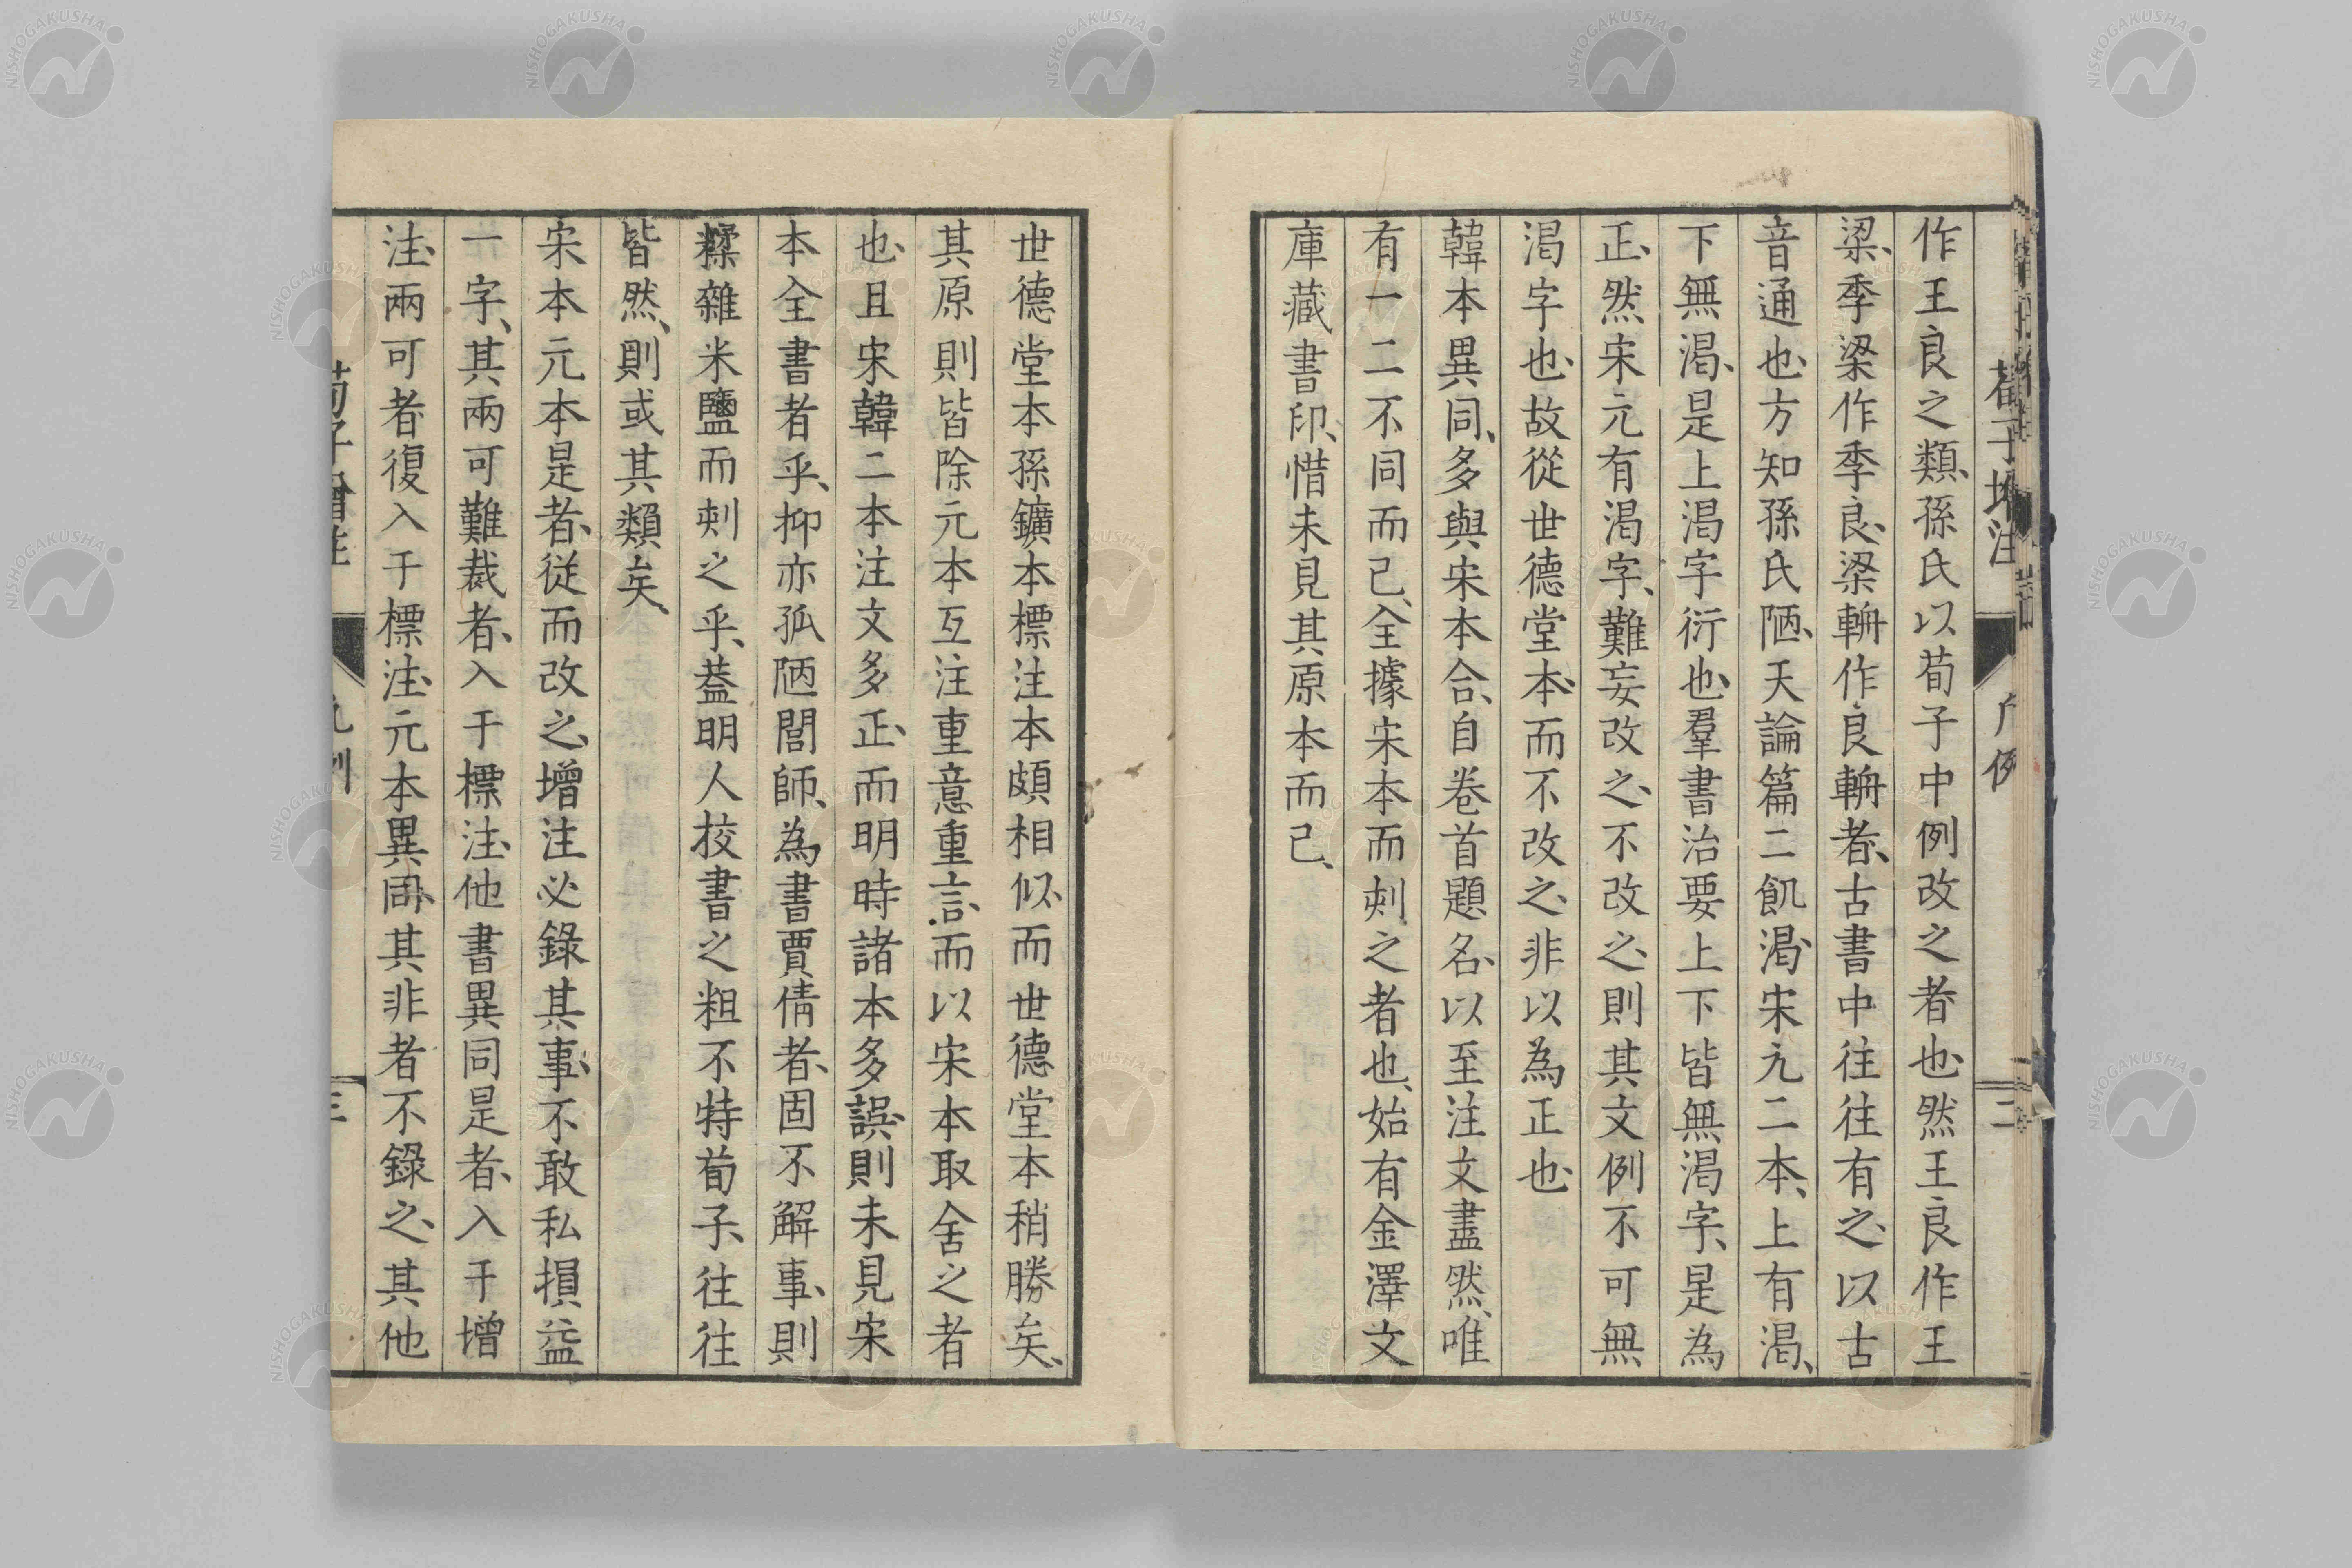 荀子增注
凡例
二
作王良之類、孫氏以荀子中例改之者也、然王良作王
梁、季梁作季良、梁輈作良輈者、古書中往往有之、以古
音通也、方知孫氏陋、天論篇二飢渴、宋元二本、上有渴、
下無渴、是上渴字衍也、羣書治要上下皆無渴字、是為
正、然宋元有渴字、難妄改之、不改之、則其文例不可無
渴字也、故從世德堂本、而不改之、非以為正也、
韓本異同、多與宋本合、自卷首題名、以至注文盡然、唯
有一二不同而已、全據宋本而刻之者也、始有金澤文
庫藏書印、惜未見其原本而已、
世德堂本孫鑛本標注本頗相似、而世德堂本稍勝矣、
其原則皆除元本互注重意重言、而以宋本取舍之者
也、且宋韓二本注文多正、而明時諸本多誤、則未見宋
本全書者乎、抑亦孤陋閭師、為書賈倩者、固不解事、則
糅雜米鹽而刻之乎、蓋明人校書之粗、不特荀子、往往
皆然、則或其類矣、
宋本元本是者、從而改之、增注必錄其事、不敢私損益
一字、其兩可難裁者、入于標注、他書異同是者、入于增
注、兩可者復入于標注、元本異同、其非者不錄之、其他
荀子增注
凡例
三